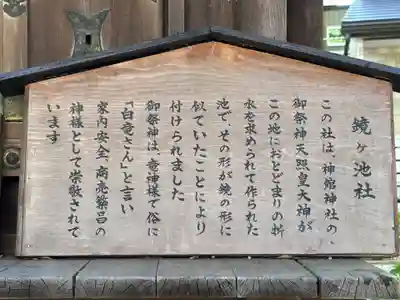 鏡ヶ池社
この社は、神館神社の、
御祭神天照皇大神が
この地におとどまりの折
水を求められて作られた
池で、その形が鏡の形に
似ていたことにより
付けられました
御祭神は、竜神様で俗に
「白竜さん」と言い
家内安全、商売繁昌の
神様として崇敬されて
います